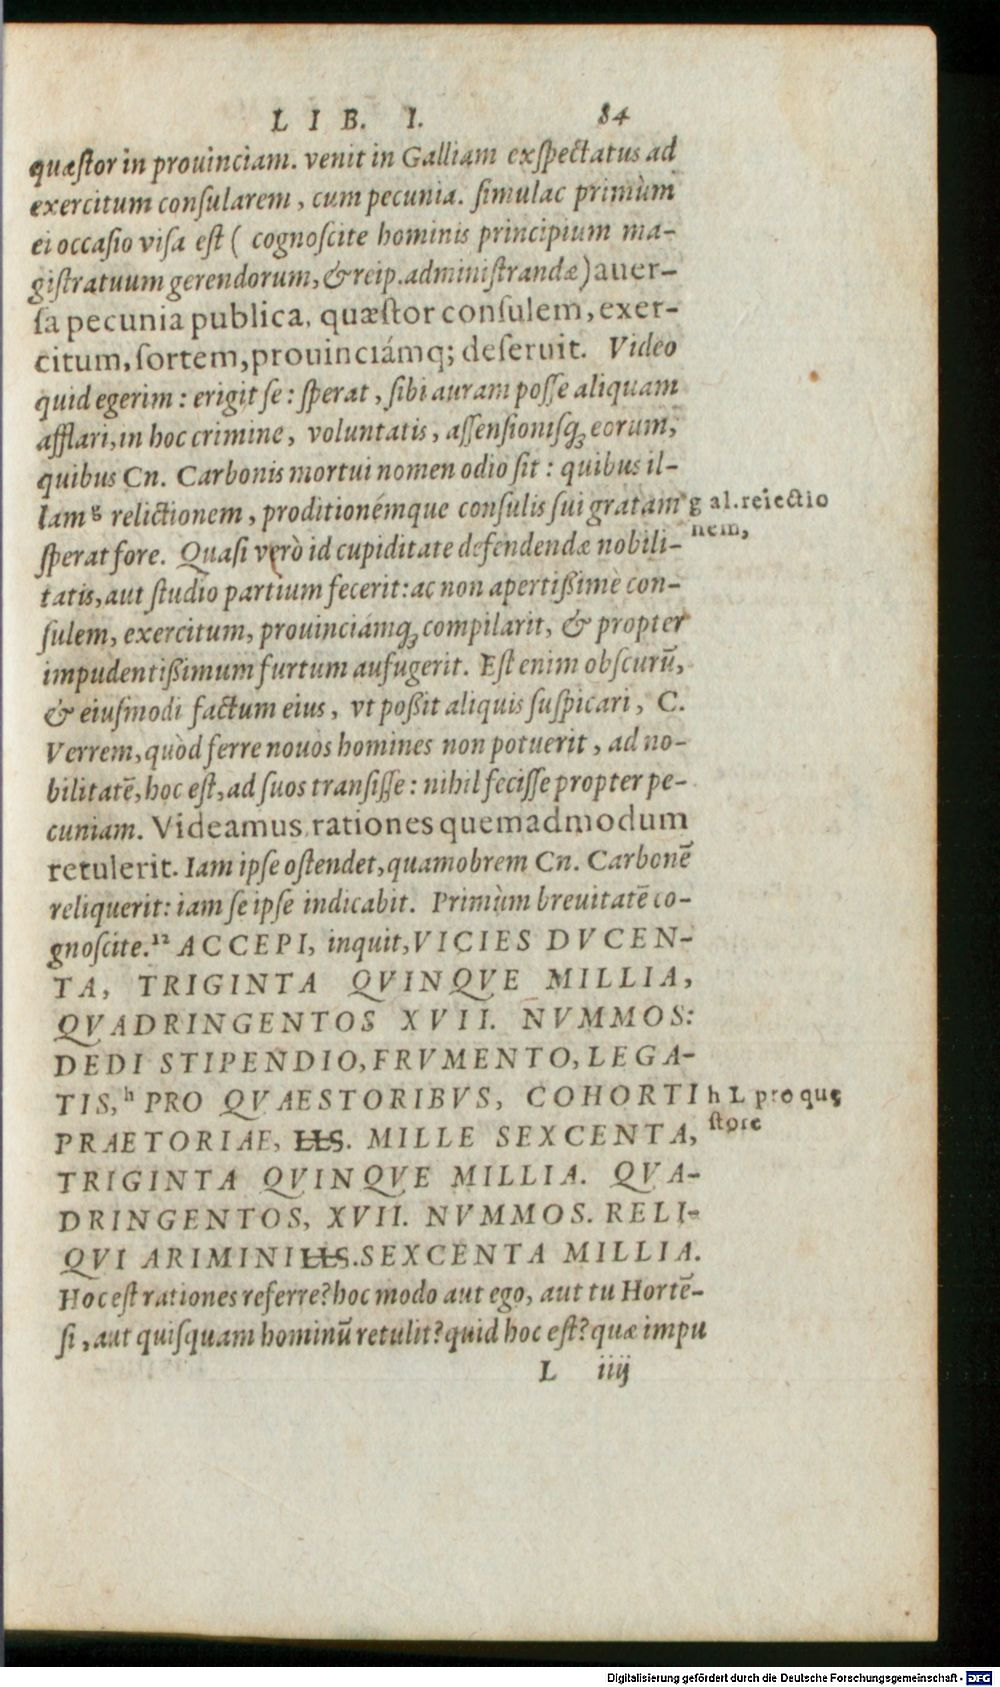 LIB. I. 84
quæſtor in prouinciam. venit in Galliam exſpectatus ad
exercitum conſularem, cum pecunia. ſimulac primùm
ei occaſio viſa eſt ( cognoſcite hominis principium ma-
giſtratuum gerendorum, & reip. adminiſtrandæ) auer-
ſa pecunia publica, quæſtor conſulem, exer-
citum, ſortem, prouinciámq; deſeruit. Video
quid egerim : erigit ſe : ſperat, ſibi auram poſſe aliquam
afflari, in hoc crimine, voluntatis, aſſenſionisq; eorum,
quibus Cn. Carbonis mortui nomen odio ſit : quibus il-
lam g relictionem, proditionémque conſulis ſui gratam
g al. reiectio
nem,
ſperat fore. Quaſi verò id cupiditate defendendæ nobili-
tatis, aut ſtudio partium fecerit: ac non apertißimè con-
ſulem, exercitum, prouinciámq; compilarit, & propter
impudentißimum furtum aufugerit. Eſt enim obſcurū,
& eiuſmodi factum eius, vt poßit aliquis ſuſpicari, C.
Verrem, quòd ferre nouos homines non potuerit, ad no-
bilitatē, hoc eſt, ad ſuos transiſſe : nihil feciſſe propter pe-
cuniam. Videamus rationes quemadmodum
retulerit. Iam ipſe oſtendet, quamobrem Cn. Carbonē
reliquerit: iam ſe ipſe indicabit. Primùm breuitatē co-
gnoſcite. 12 ACCEPI, inquit, VICIES DVCEN-
TA, TRIGINTA QVINQVE MILLIA,
QVADRINGENTOS XVII. NVMMOS:
DEDI STIPENDIO, FRVMENTO, LEGA-
TIS, h PRO QVAESTORIBVS, COHORTI
h L pro quę
ſtore
PRAETORIAE, HS. MILLE SEXCENTA,
TRIGINTA QVINQVE MILLIA. QVA-
DRINGENTOS, XVII. NVMMOS. RELI-
QVI ARIMINI HS. SEXCENTA MILLIA.
Hoc eſt rationes referre? hoc modo aut ego, aut tu Hortē-
ſi, aut quiſquam hominū retulit? quid hoc eſt? quæ impu
L iiij
Digitalisierung gefördert durch die Deutsche Forschungsgemeinschaft - DFG